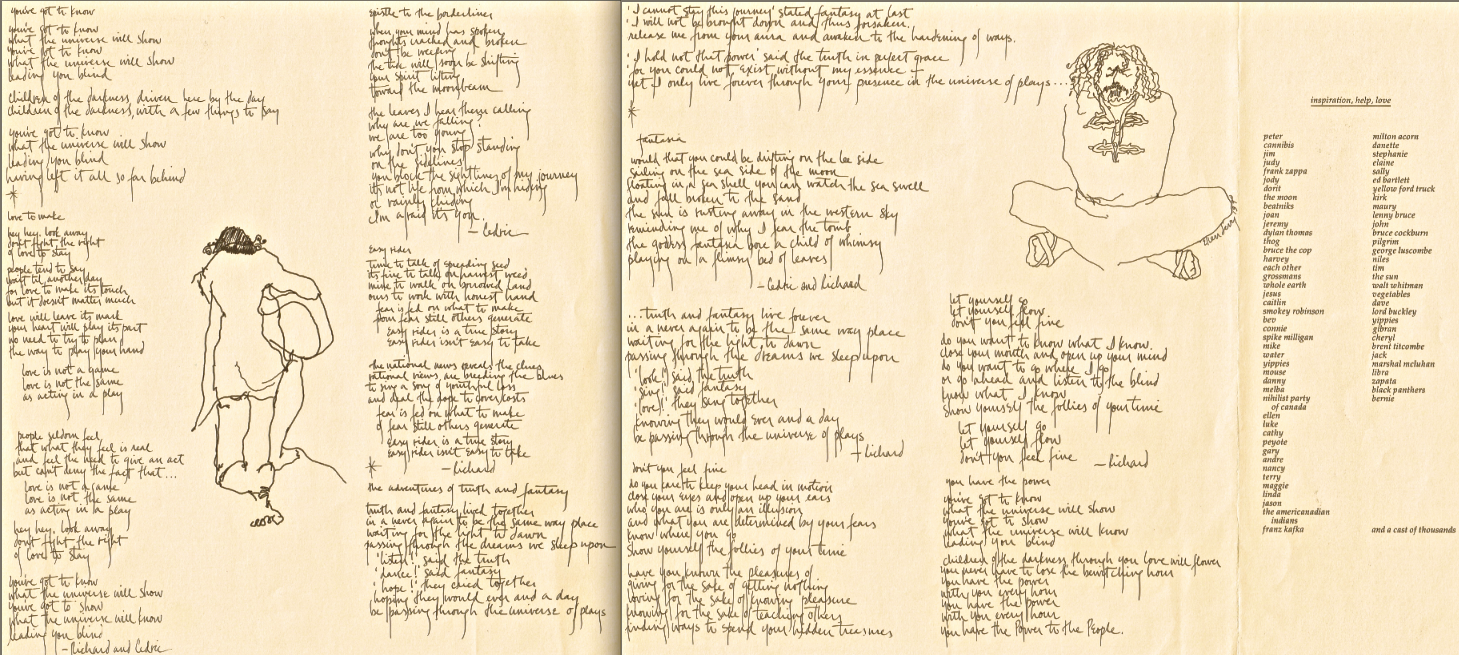 you've got to know
you've got to know
what the universe will show
you've got to know
what the universe will show
leading you blind
children of the darkness, driven here by the day
children of the darkness, with a few things to say
you've got to know
what the universe will show
leading you blind
having left it all so far behind
*
love to make
hey hey. look away
don't fight the right
of love to stay
people tend to say
wait til another day
for love to make its touch
but it doesn't matter much
love will leave its mark
your heart will play its part
no need to try to plan
the way to play your hand
love is not a game
love is not the same
as acting in a play
people seldom feel
that what they feel is real
and feel the need to give an act
but can't deny the fact that...
love is not a game
love is not the same
as acting in a play
hey hey. look away
don't fight the right
of love to stay
you've got to know
what the universe will show
you've got to show
what the universe will know
leading you blind
- Richard and Cedric
epistle to the borderliner
when your mind has spoken
thoughts cracked and broken
don't be weeping
the tide will soon be shifting
your spirit lifting
toward the moonbeam
the leaves I hear them calling
why are we falling?
we are too young
why don't you stop standing
on the sidelines
you block the sightlines of my journey
it's not life from which I'm hiding
or vainly chiding
I'm afraid it's you.
- Cedric
Easy rider
time to talk of spreading seed
its fine to talk on harvest weed
mine to walk on borrowed land
ours to work with honest hand
fear is fed on what to make
poor fear still others generate
Easy rider is a true story
Easy rider isn't easy to take
the national news reveals the clues
rational views are breeding the blues
to sing a song of youthful loss
and deal the dope to cover costs
fear is fed on what to make
of fear still others generate
Easy rider is a true story
Easy rider isn't easy to take
* - Richard
the adventures of truth and fantasy
truth and fantasy lived together
in a never again to be the same way place
waiting for the light to dawn
passing through the dreams we sleep upon
'listen!' said the truth
'dance!' said fantasy
'hope!' they cried together
hoping they would ever and a day
be passing through the universe of plays
'I cannot stay this journey' stated fantasy at last
'I will not be brought down and thus forsaken.
release me from your aura and awaken to the hardening of ways.
'I hold not that power' said the truth in perfect grace
'for you could not exist without my essence +
yet I only live forever through your presence in the universe of plays...
*
fantasia
would that you could be drifting on the lee side
sailing on the sea side of the moon
floating in a sea shell you can watch the sea swell
and fall broken to the sand
the sun is rusting away in the western sky
reminding me of why I fear the tomb
the goddess fantasia bore a child of whimsy
playing on a flimsy bed of leaves
- Cedric and Richard
...truth and fantasy live forever
in a never again to be the same way place
waiting for the light to dawn
passing through the dreams we sleep upon
'look!' said the truth
'sing!' said fantasy
'love!' they sang together
knowing they would ever and a day
be passing through the universe of plays
- Richard
don't you feel fine
do you care to keep your head in motion
close your eyes and open up your ears
who you are is only an illusion
and what you are determined by your fears
know where you go
show yourself the follies of your time
have you known the pleasures of
giving for the sake of getting nothing
loving for the sake of knowing pleasure
knowing for the sake of teaching others
finding ways to spend your hidden treasures
let yourself go
let yourself flow
don't you feel fine
do you want to know what I know.
close your mouth and open up your mind
do you want to go where I go
or go ahead and listen to the blind
know what I know
show yourself the follies of your time
let yourself go
let yourself flow
don't you feel fine
- Richard
you have the power
you've got to know
what the universe will show
you've got to show
what the universe will know
leading you blind
children of the darkness, through you love will flower
you never have to lose the bewitching hour
you have the power
with you every hour
you have the power
with you every hour
you have the Power to the People.
inspiration, help, love
peter
cannibis
jim
judy
frank zappa
jody
dorit
the moon
beatniks
joan
jeremy
dylan thomas
thog
bruce the cop
harvey
each other
grossmans
whole earth
jesus
caitlin
smokey robinson
bev
connie
spike milligan
mike
water
yippies
mouse
danny
melba
nihilist party
of canada
ellen
luke
cathy
peyote
gary
andre
nancy
terry
maggie
linda
jason
the americanadian
indians
franz kafka
milton acorn
danette
stephanie
elaine
sally
ed bartlett
yellow ford truck
kirk
maury
lenny bruce
john
bruce cockburn
pilgrim
george luscombe
niles
tim
the sun
walt whitman
vegetables
dave
lord buckley
yippies
gibran
cheryl
brent titcombe
jack
marshal mcluhan
libra
zapata
black panthers
bernie
and a cast of thousands